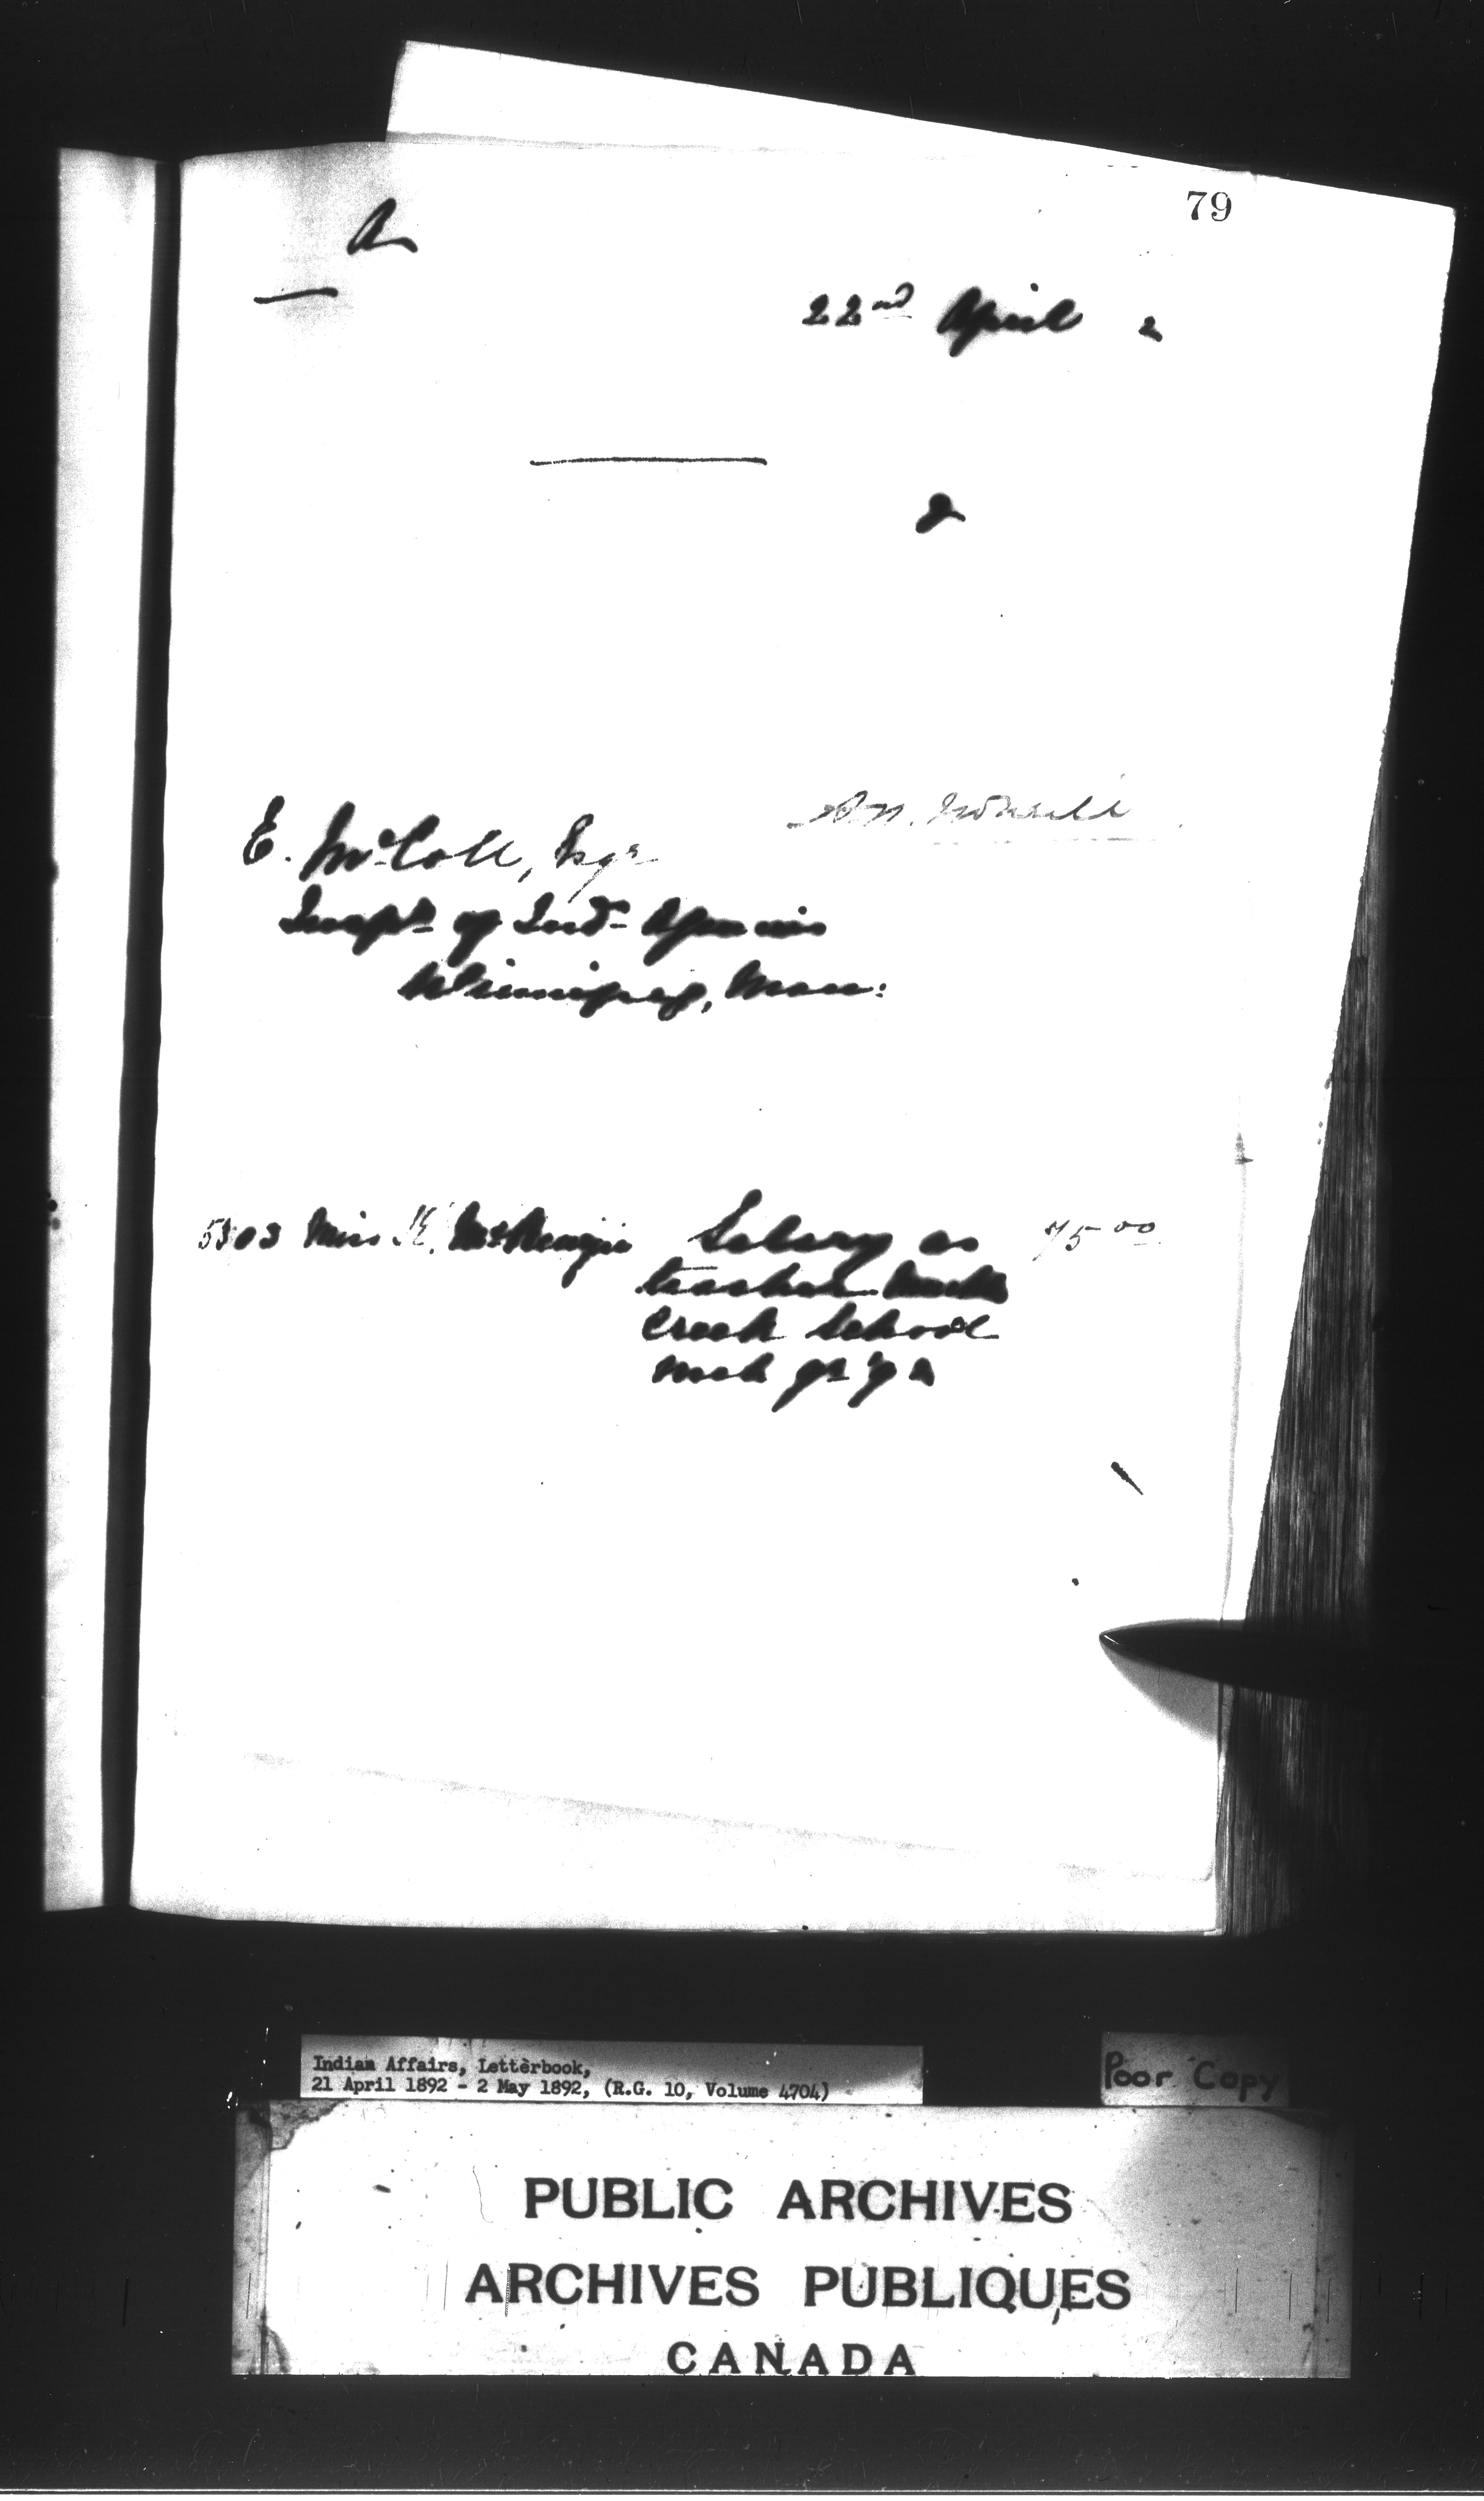 79
A
22nd April 2
E. McColl, Esqr
Inspt of Ind Agencies
Winnipeg, Man:
5303 Miss K. McKenzie Salary as 75 00
teacher
Creek School
Mch qr 92
Indian Affairs, Letterbook,
21 April 1892 - 2 May 1892, (R.G. 10, Volume 4704)
Poor Copy
PUBLIC ARCHIVES
ARCHIVES PUBLIQUES
CANADA